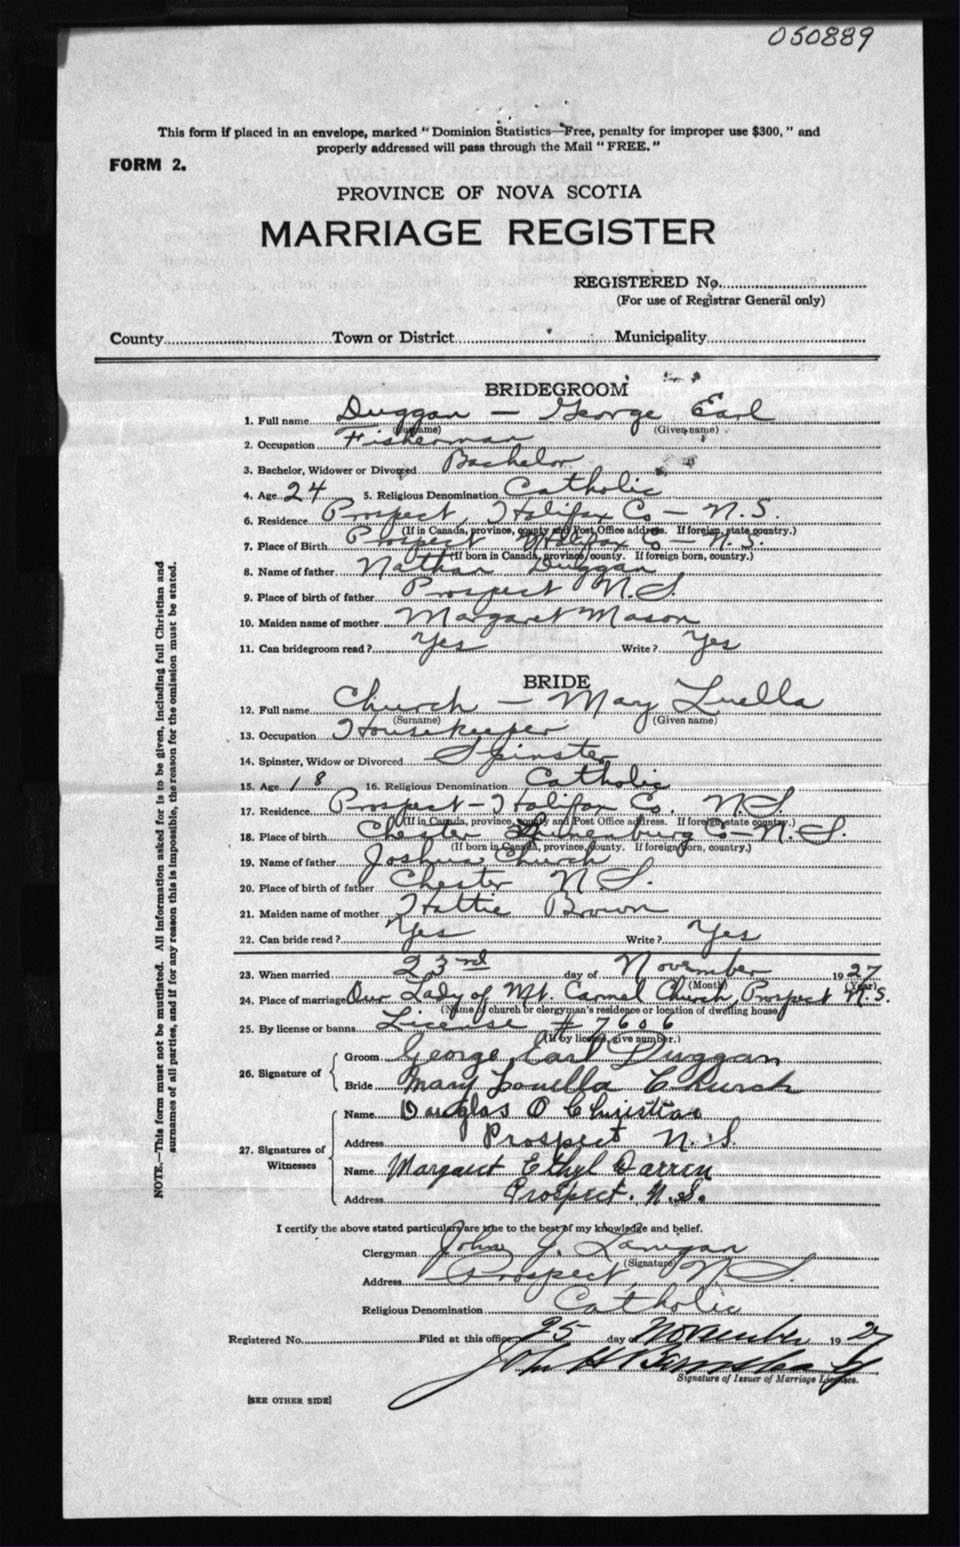 050889
This form if placed in an envelope, marked "Dominion Statistics—Free, penalty for improper use $300," and
properly addressed will pass through the Mail "FREE."
FORM 2.
PROVINCE OF NOVA SCOTIA
MARRIAGE REGISTER
REGISTERED No.
(For use of Registrar General only)
County Town or District Municipality
BRIDEGROOM
1. Full name Duggan — George Earl
(Surname) (Given name)
2. Occupation Fisherman
3. Bachelor, Widower or Divorced Bachelor
4. Age 24 5. Religious Denomination Catholic
6. Residence Prospect, Halifax Co — N.S.
(If in Canada, province, county and Post Office address. If foreign, state country.)
7. Place of Birth Prospect Halifax Co — N.S.
(If born in Canada, province, county. If foreign born, country.)
8. Name of father Nathan Duggan
9. Place of birth of father Prospect N.S.
10. Maiden name of mother Margaret Mason
11. Can bridegroom read? Yes Write? Yes
BRIDE
12. Full name Church — May Luella
(Surname) (Given name)
13. Occupation Housekeeper
14. Spinster, Widow or Divorced Spinster
15. Age 18 16. Religious Denomination Catholic
17. Residence Prospect - Halifax Co. N.S.
(If in Canada, province, county and Post Office address. If foreign state country.)
18. Place of birth Chester Lunenburg Co — N.S.
(If born in Canada, province, county. If foreign born, country.)
19. Name of father Joshua Church
20. Place of birth of father Chester N S.
21. Maiden name of mother Hattie Brown
22. Can bride read? Yes Write? Yes
23. When married 23rd day of November 1927
(Month) (Year)
24. Place of marriage Our Lady of Mt. Carmel Church, Prospect N.S.
(Name of church or clergyman's residence or location of dwelling house)
25. By license or banns License # 7606
(If by license, give number.)
26. Signature of
Groom George Earl Duggan
Bride Mary Louella Church
27. Signatures of Witnesses
Name Douglas O Christian
Address Prospect N.S.
Name Margaret Ethyl
Address Prospect. N.S.
I certify the above stated particulars are true to the best of my knowledge and belief.
Clergyman John J. Lanigan
(Signature)
Address Prospect, N S.
Religious Denomination Catholic
Registered No. Filed at this office 25 day of November 1927
John H
Signature of Issuer of Marriage Licenses.
[SEE OTHER SIDE]
NOTE.—This form must not be mutilated. All information asked for is to be given, including full Christian and
surnames of all parties, and if for any reason this is impossible, the reason for the omission must be stated.